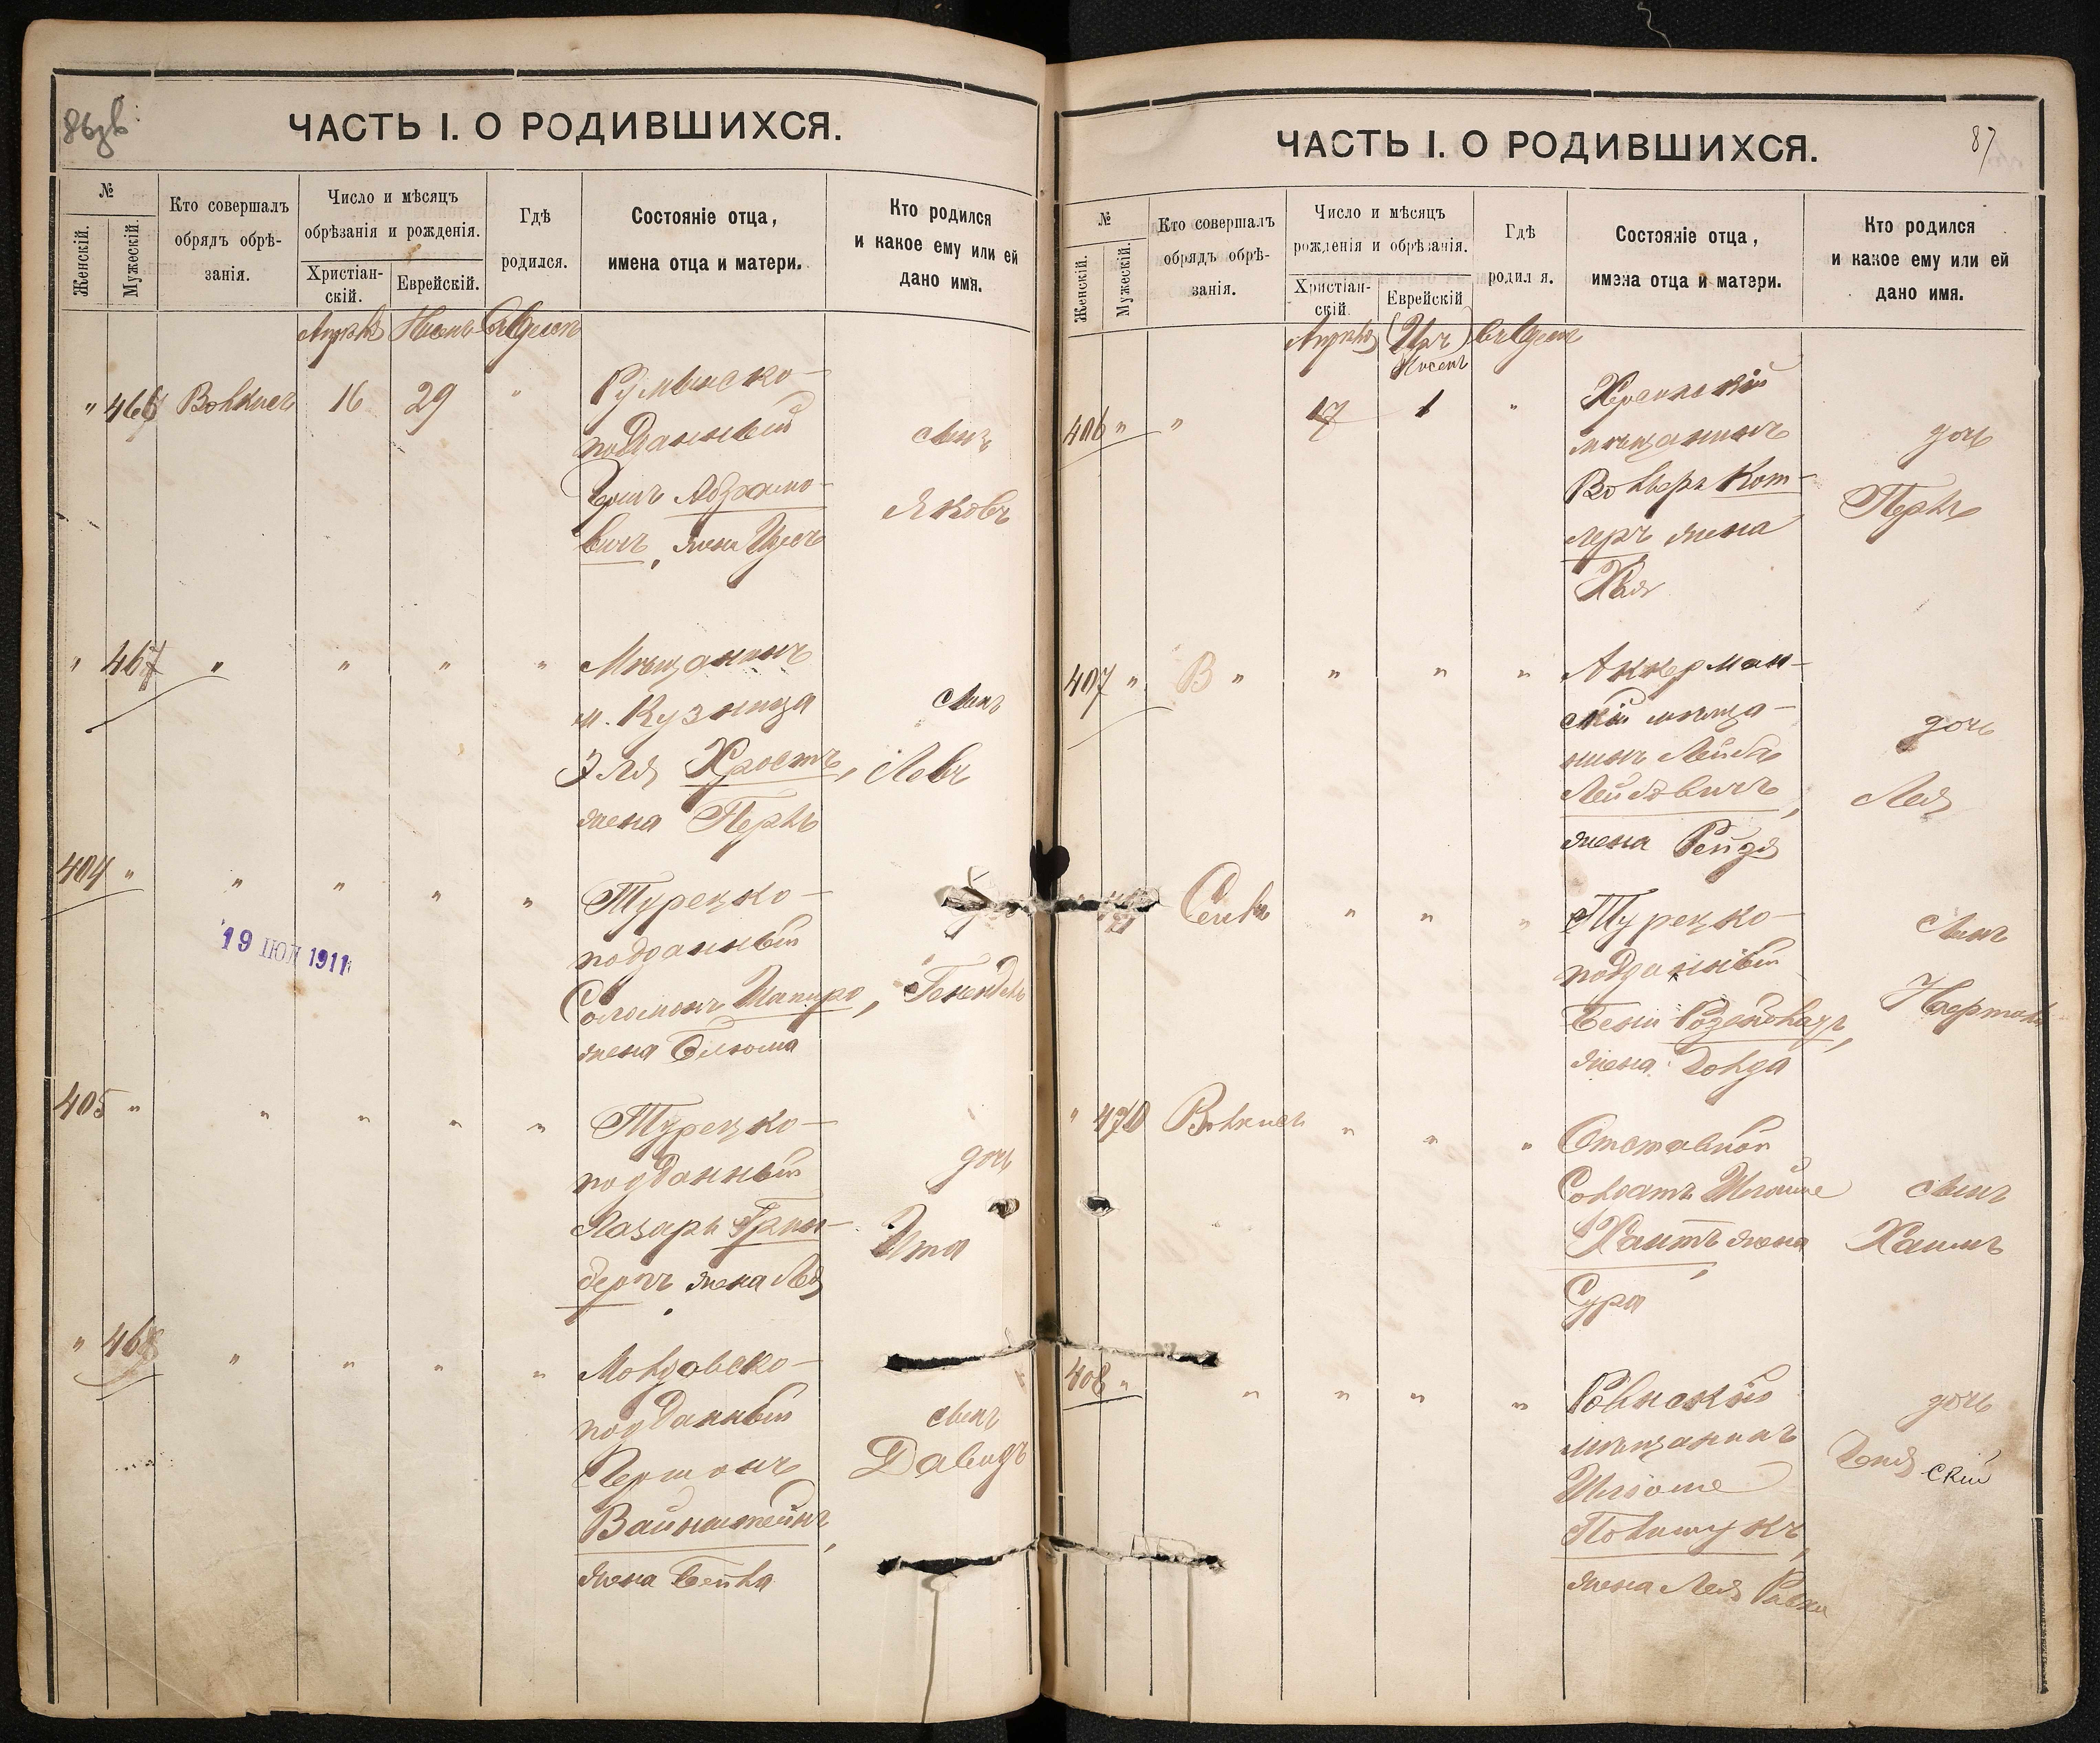 86 зв
ЧАСТЬ I. О РОДИВШИХСЯ.
№
Женскій.
Мужескій.
Кто совершалъ
обрядъ обрѣ-
занія.
Число и мѣсяцъ
обрѣзанія и рожденія.
Христіан-
скій.
Еврейскій.
Гдѣ
родился.
Состояніе отца,
имена отца и матери.
Кто родился
и какое ему или ей
дано имя.
Апрѣль
въ Одессѣ
" 466
16 29 "
Румынско-
подданный
Абрамо-
вичъ, жена
сынъ
Яковъ
" 467 " " " "
Мѣщанинъ
м. Кузница
Эля Хростъ,
жена Перль
сынъ
Левъ
404 " " " " "
Турецко-
подданный
Соломонъ Шапиро,
жена Блюма
Гендель
19 ІЮЛ 1911
405 " " " " "
Турецко-
подданный
Лазарь Грин-
бергъ жена Лея
дочь
Ита
" 468 " " " "
Молдовско-
подданный
Гершонъ
Вайнштейнъ,
жена Бейла
сынъ
Давидъ
87
ЧАСТЬ I. О РОДИВШИХСЯ.
№
Женскій.
Мужескій.
Кто совершалъ
обрядъ обрѣ-
занія.
Число и мѣсяцъ
рожденія и обрѣзанія.
Христіан-
скій
Еврейскій
Гдѣ
родил я.
Состояніе отца,
имена отца и матери.
Кто родился
и какое ему или ей
дано имя.
Апрѣль
въ Одессѣ
406 " "
17 1 "
Херсонскій
мѣщанинъ
Вольфъ Кот-
леръ жена
Хая
дочь
Перль
407 " " " " "
Аккерман-
скій мѣща-
нинъ Лейбъ
Лейбовичъ,
жена Рейзя
дочь
Лея
" " "
Турецко-
подданный
жена Голда
сынъ
" 470 " " "
Отставной
Солдатъ Шлойме
жена
Сура
сынъ
Хаимъ
408 " " " " "
Ровнскій
мѣщанинъ
Шломе
Полищукъ,
жена Лея Ривка
дочь
Геня
ский